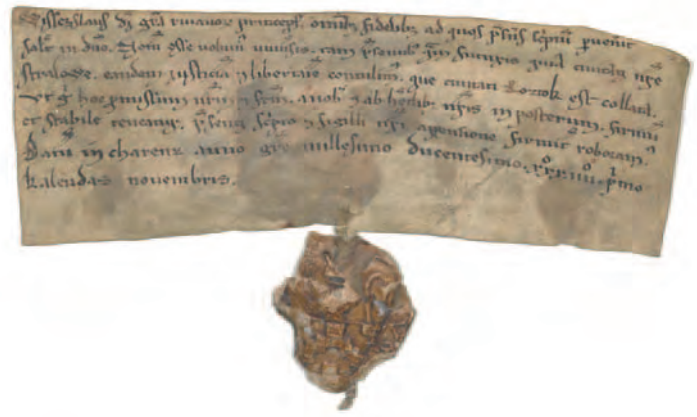 Wissezlauſ di gra ruianoꝝ princepſ. omib fidelib ad quoſ pſenſ ſcptū puenit
ſalt in dno. Notū eſſe volum univſiſ. tam pſentib qm futuriſ quod civitati nre
ſtralowe. eandem iuſticiā ⁊ libertatē contulim. que civitati Rozſtok eſt collata.
Vt g hoc pmiſſum nrm ⁊ fcm. a nob ⁊ ab hedib nriſ in poſterum. firmū
et ſtabile teneatur. pſenti ſcpto ⁊ ſigilli nri appenſione firmit roboram.
Datū in charenz anno gre milleſimo ducenteſimo. xxxiiii.
kalendas novembris.